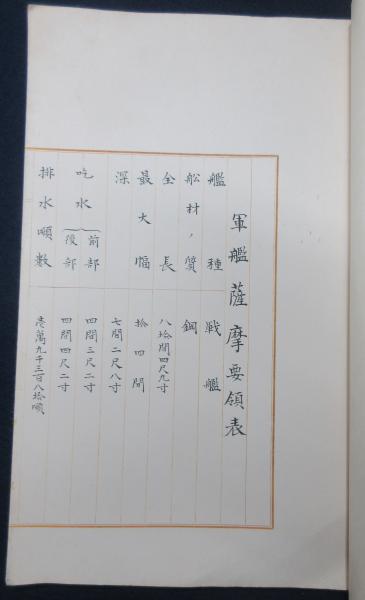 軍艦薩摩要領表
艦種 戦艦
船材ノ質 鋼
全長 八拾間四尺九寸
最大幅 拾四間
深 七間二尺八寸
吃水 前部 四間三尺二寸
後部 四間四尺二寸
排水噸数 壱萬九千三百八拾噸